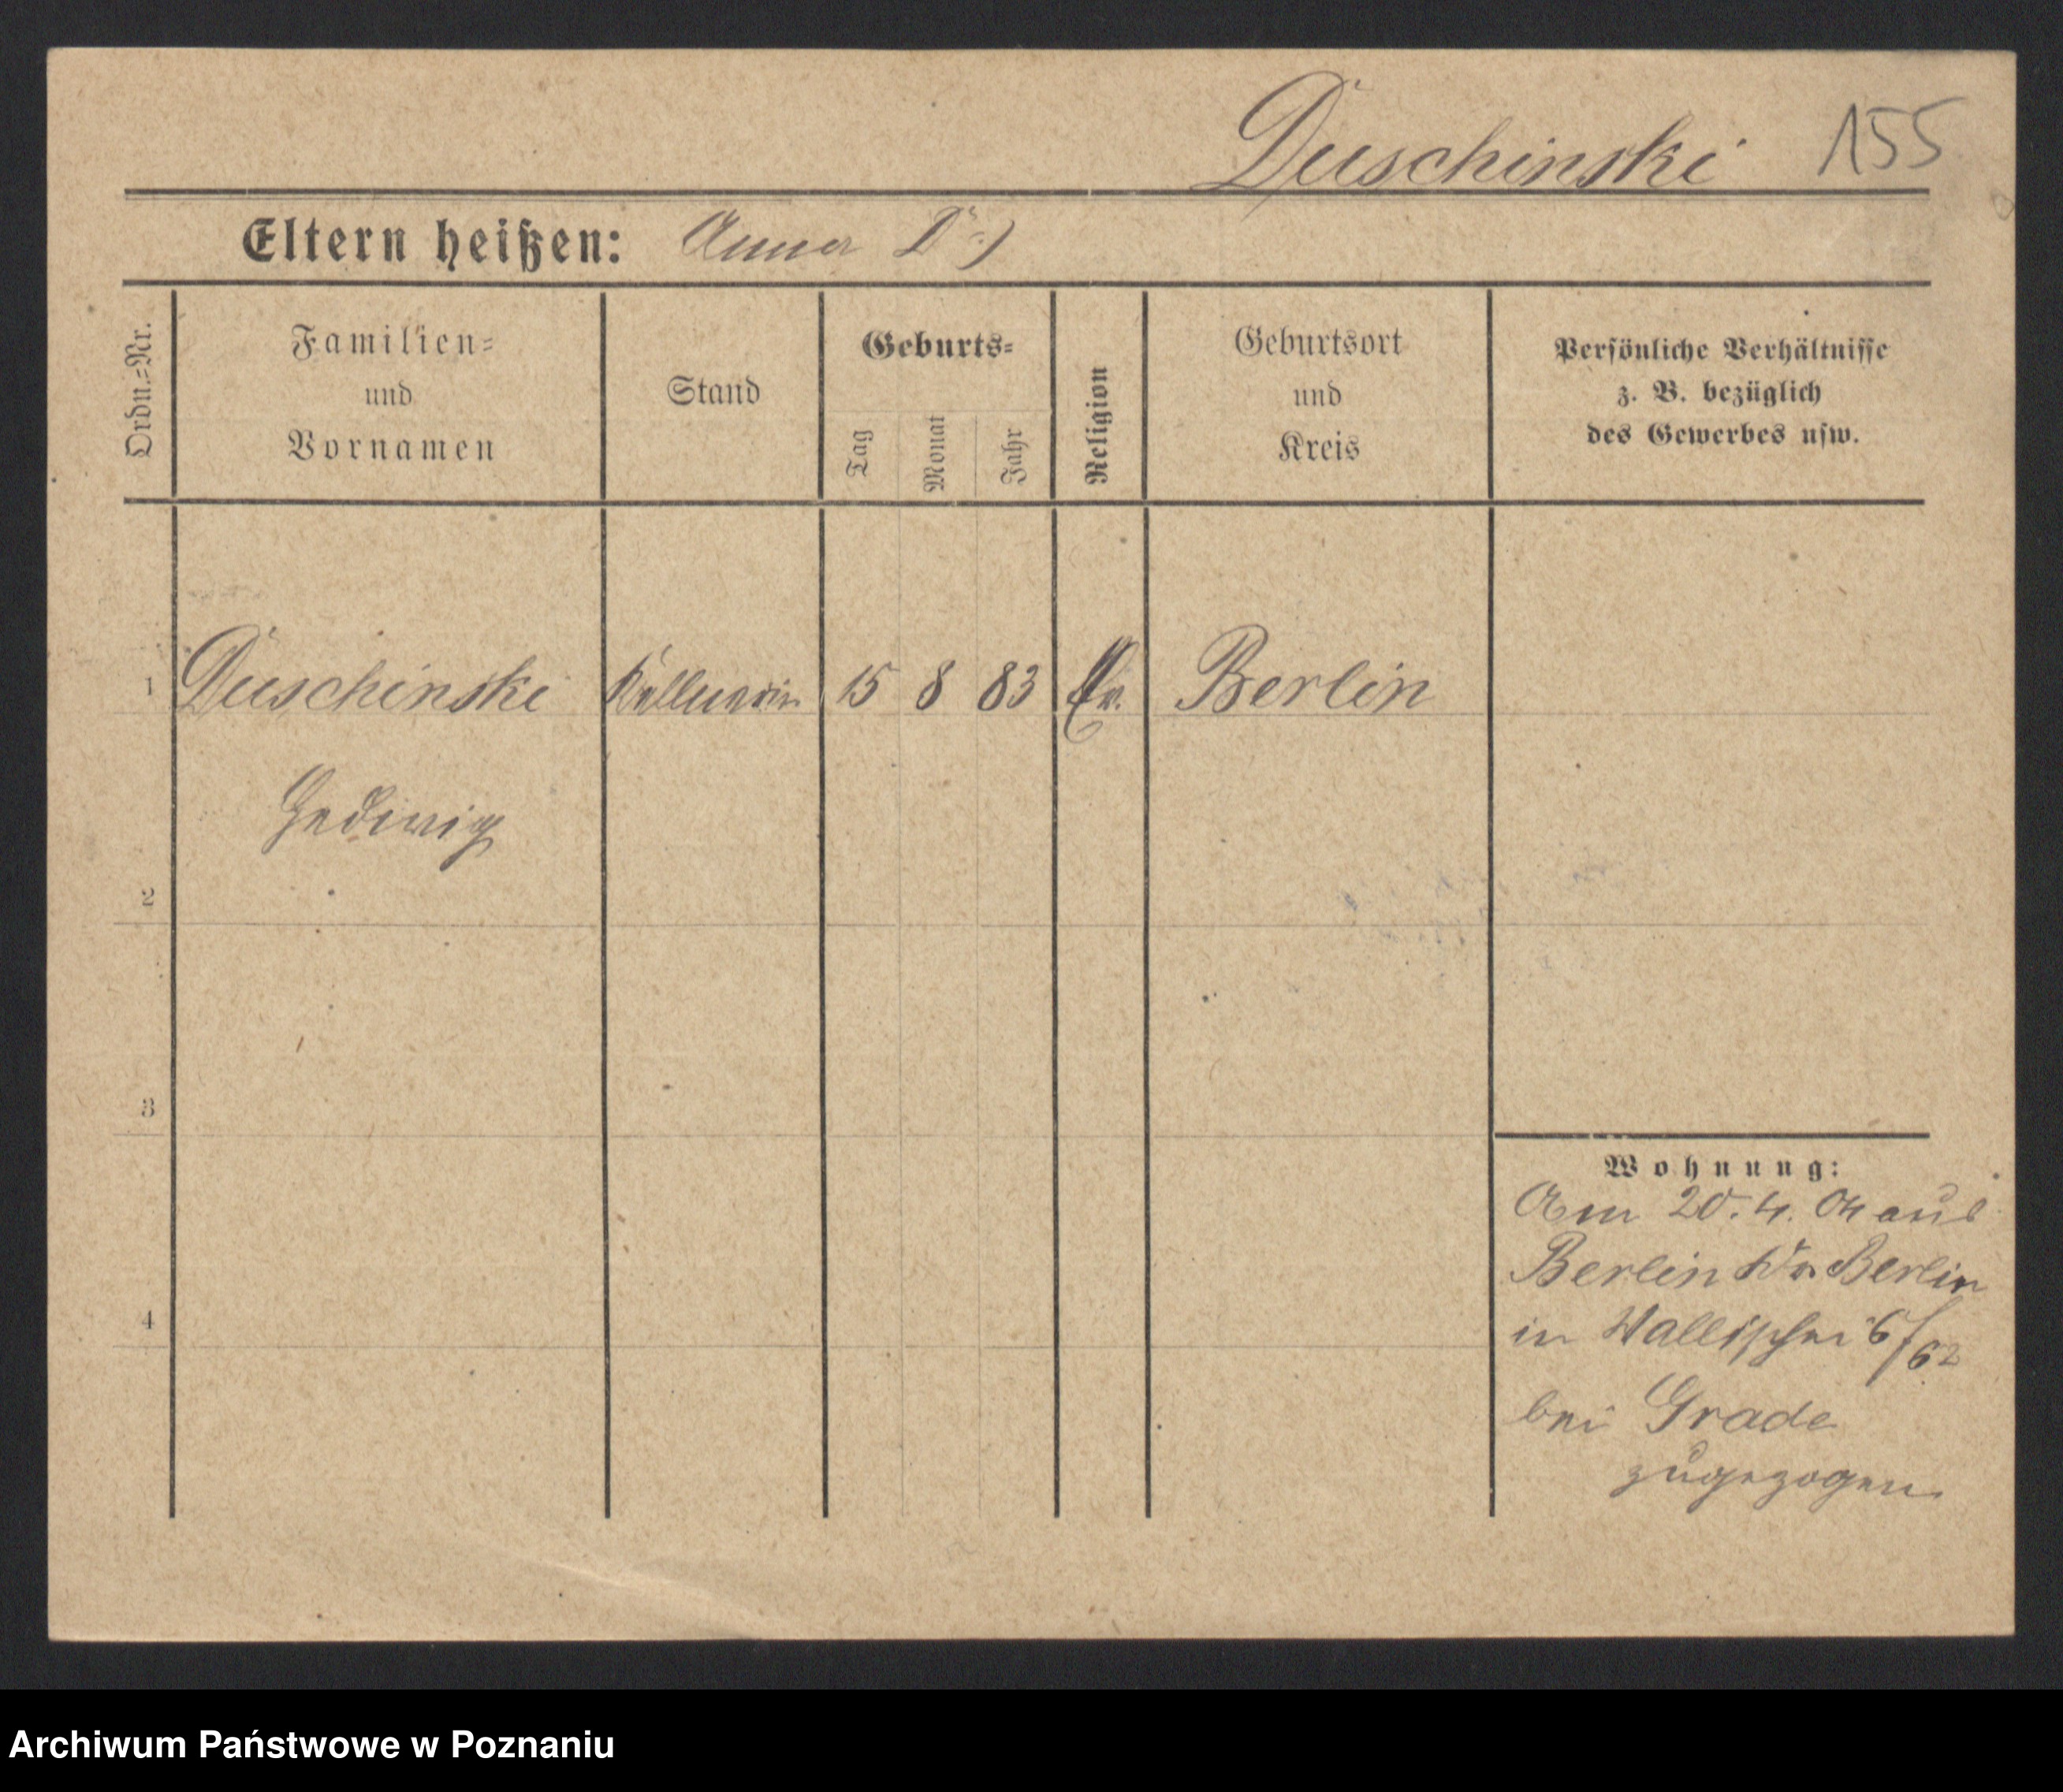 Duschinski 155
Eltern heißen: Anna D :)
Ordn.=Nr.
Familien=
und
Vornamen
Stand
Geburts=
Tag
Monat
Jahr
Religion
Geburtsort
und
Kreis
Persönliche Verhältnisse
z. B. bezüglich
des Gewerbes usw.
1 Duschinski Kellnerin 15 8 83 Ev. Berlin
Hedwig
2
3
4
Wohnung:
Am 20.4.04 aus
Berlin Kr. Berlin
in Wallischei 6/62
bei Grade
zugezogen
Archiwum Państwowe w Poznaniu